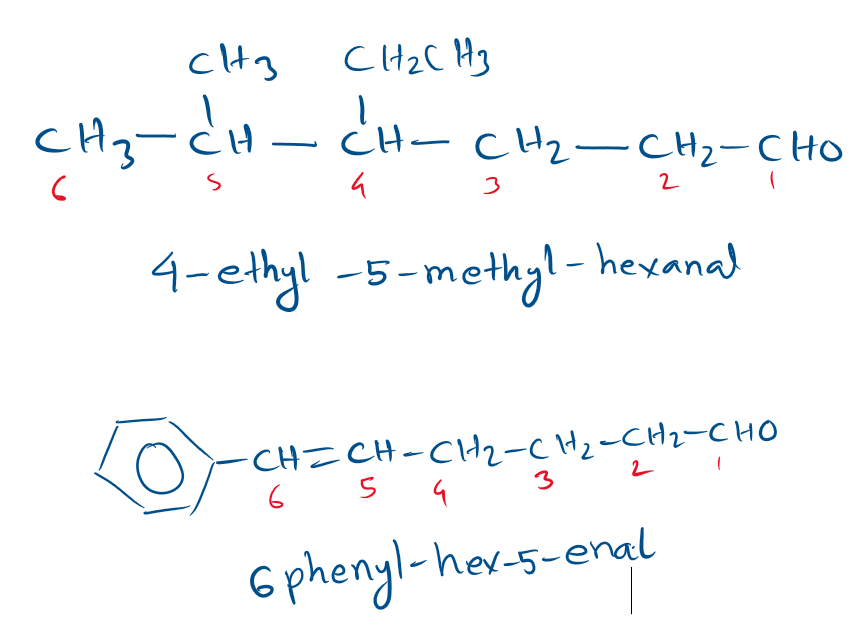 CH3 CH2CH3
CH3-CH-CH-CH2-CH2-CHO
6 5 4 3 2 1
4-ethyl-5-methyl-hexanal
CH=CH-CH2-CH2-CH2-CHO
6 5 4 3 2 1
6 phenyl-hex-5-enal